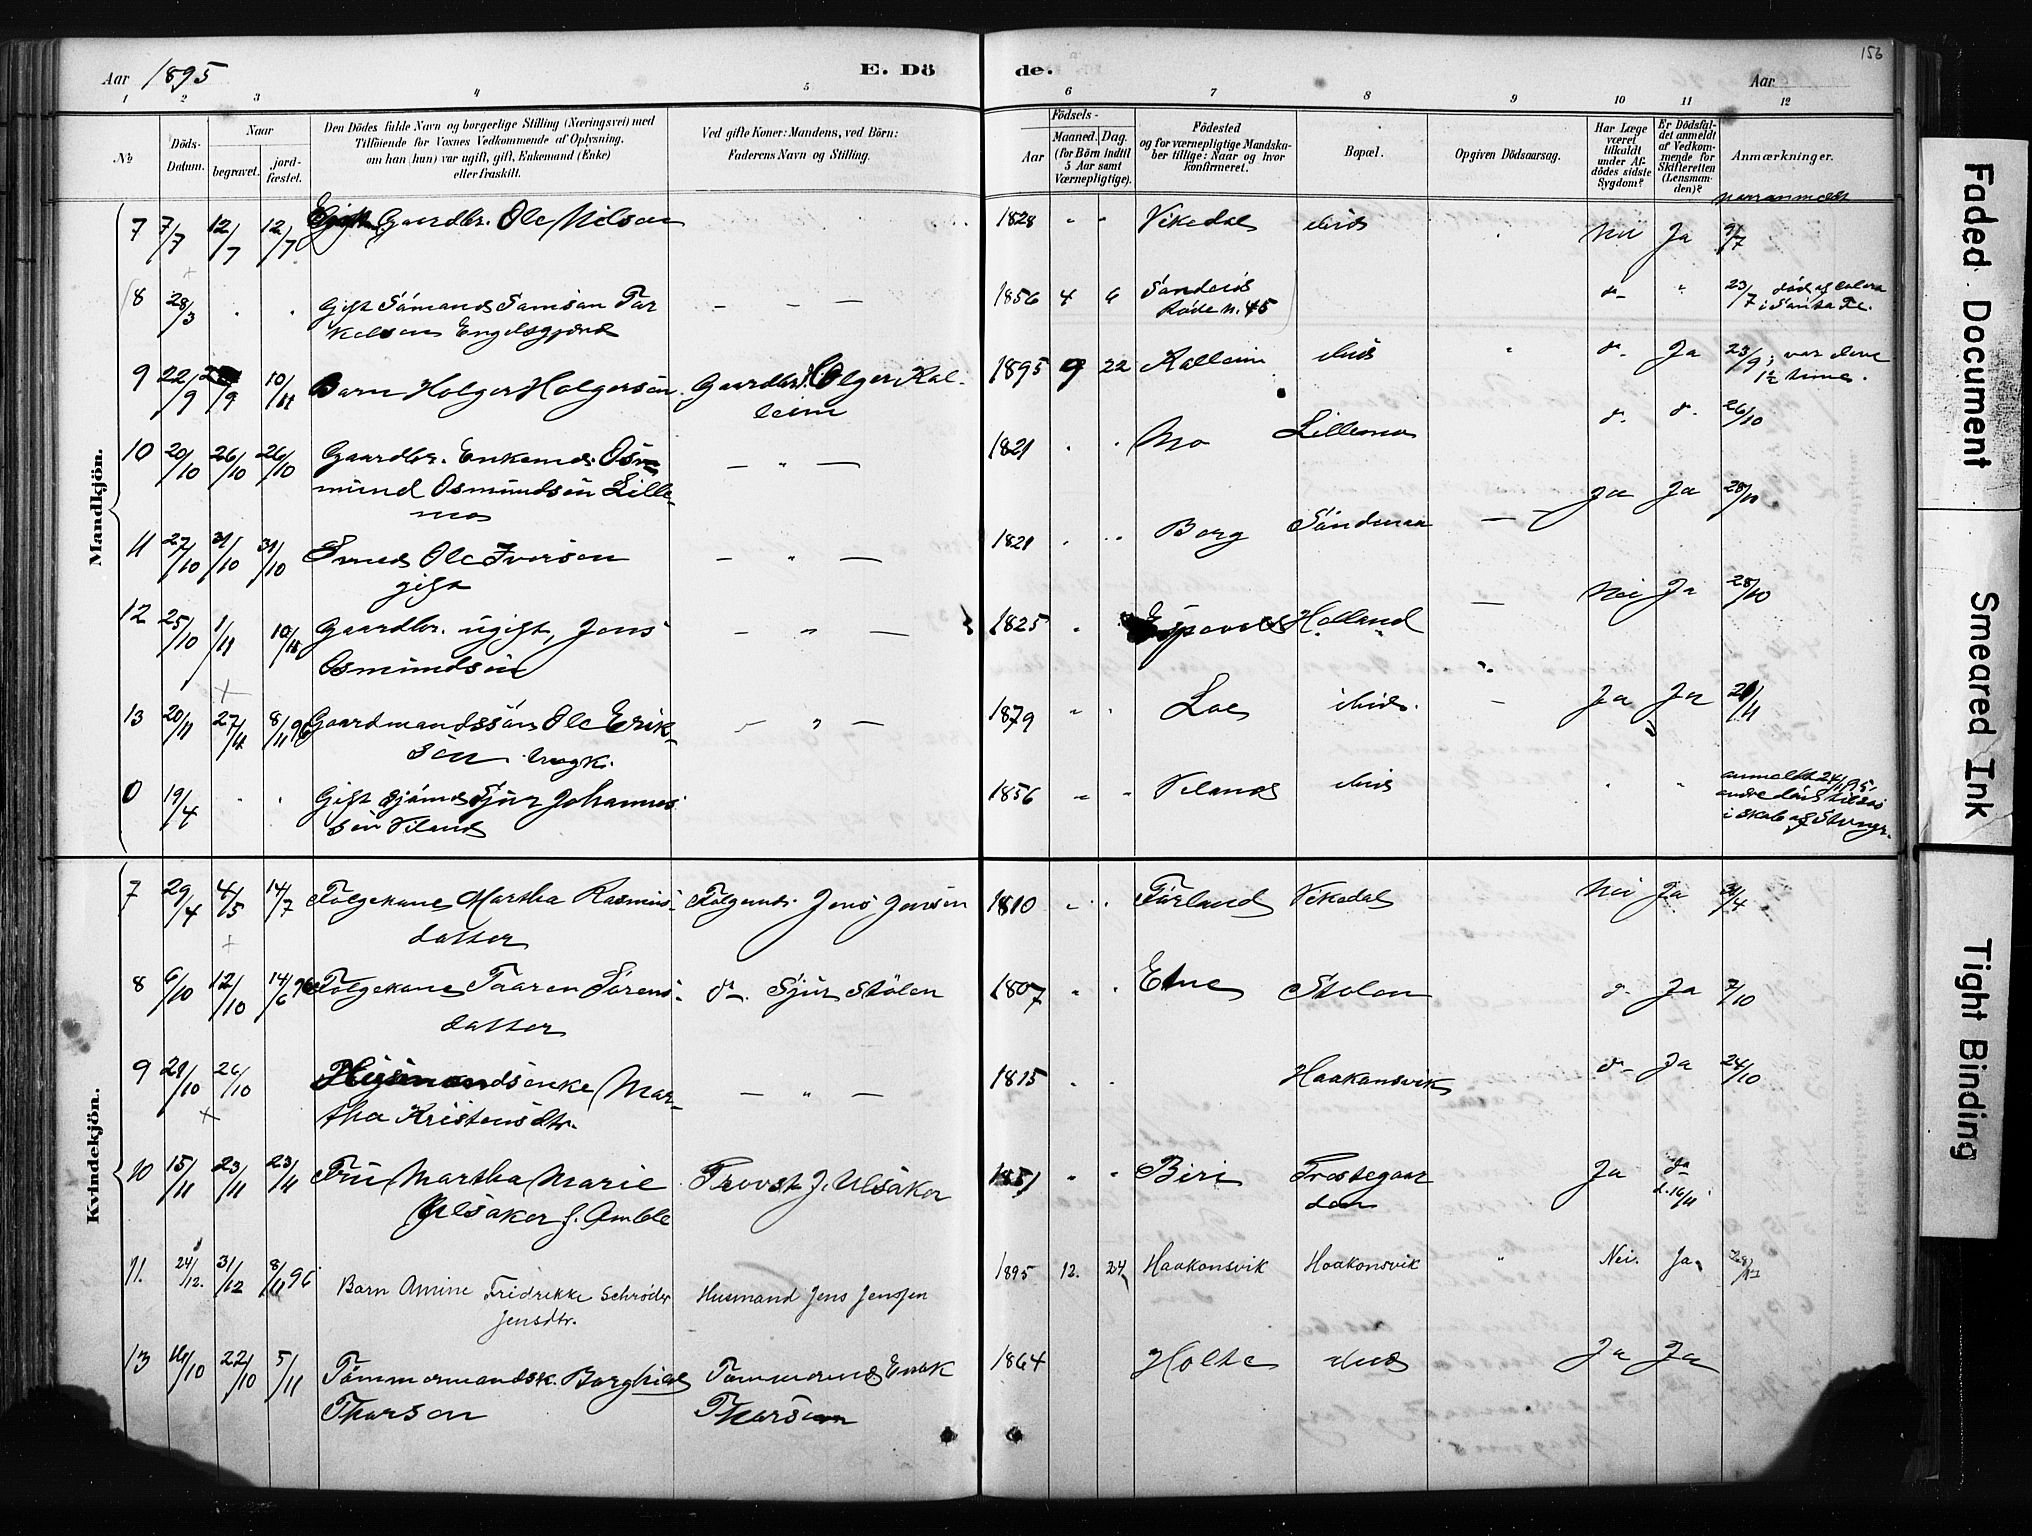 156
Aar 1895
E. Dö
de.
Aar
1 2 3 4 5 6 7 8 9 10 11 12
№
Döds-
Datum.
Naar
begravet.
jord-
fæstet.
Den Dödes fulde Navn og borgerlige Stilling (Næringsvei) med
Tilföiende for Voxnes Vedkommende af Oplysning,
om han (hun) var ugift, gift, Enkemand (Enke)
eller fraskilt.
Ved gifte Koner: Mandens, ved Börn:
Faderens Navn og Stilling.
Födsels-
Aar
Maaned. Dag.
(for Börn indtil
5 Aar samt
Værnepligtige).
Födested
og for værnepligtige Mandska-
ber tillige: Naar og hvor
konfirmeret.
Bopæl.
Opgiven Dödsaarsag.
Har Læge
været
tilkaldt
under Af-
dödes sidste
Sygdom?
Er Dödsfal-
det anmeldt
af Vedkom-
mende for
Skifteretten
(Lensman-
den)?
Anmærkninger.
Mandkjön.
7 7/7 12/7 12/7 Gaardbr. Ole Nilsen 1828 " " Vikedal ibid Nei Ja 9/7
8 28/3 Gift Sömand Samson Tor
kelsen Engelsgjerd — — — 1856 4 6 Sandeid
Rode n. 45 do " 23/7 död af colera
i Santa Fe.
9 22/9 10/11 Barn Holger Holgersen Gaardbr. Olger Kal-
leim 1895 9 22 Kalleim ibid " do Ja 23/9; var leve
1½ time.
10 20/10 26/10 26/10 Gaardbr. Enkemd. Os
mund Osmundsen Lille
mo — " — 1821 Mo Lillemo do do 26/10
11 27/10 31/10 31/10 Smed Ole Iversen
gift — " — 1821 Borg Söndenaa — Ja Ja 28/10
12 25/10 1/11 Gaardbr. ugift, Jens
Osmundsen — " — 1825 Espeval Hölland — Nei Ja 28/10
13 20/11 27/11 8/11 96 Gaardmandssön Ole Erik-
sen. ungk. — " — 1879 Lae ibid. — Ja Ja 21/11
0 19/4 Gift Sjömd Sjur Johannes
sen Viland 1856 " " Viland ibid
Kvindekjön.
7 29/4 4/5 14/7 Folgekone Martha Rasmus-
datter Folgemd. Jens Jensen 1810 Förland Vikedal Nei Ja 31/4
8 6/10 12/10 14/6 96 Folgekone Taaren Sörens-
datter do. Sjur Stölen 1807 Etne Stolen do Ja 7/10
9 21/10 26/10 Husmandsenke Mar-
tha Kristensdtr. — " — 1815 Haakonsvik do Ja 24/10
10 15/11 23/11 23/11 Fru Martha Marie
Ulsaker f. Amble Provst J. Ulsaker 1851 " " Biri Prostegaar
den Ja Ja
d. 16/11
11. 24/12. 31/12 8/11 96 Barn Amine Fridrikke Schrøder
Jensdtr. Husmand Jens Jensen 1895 12. 24 Haakonsvik Haakonsvik " Nei. Ja.
13 16/10 22/10 5/11 Tömmermandsk. Borghild
Thorsen Tömmermd Enok
Thorsen 1864 Holte ibid Ja Ja
Faded Document
Smeared Ink
Tight Binding